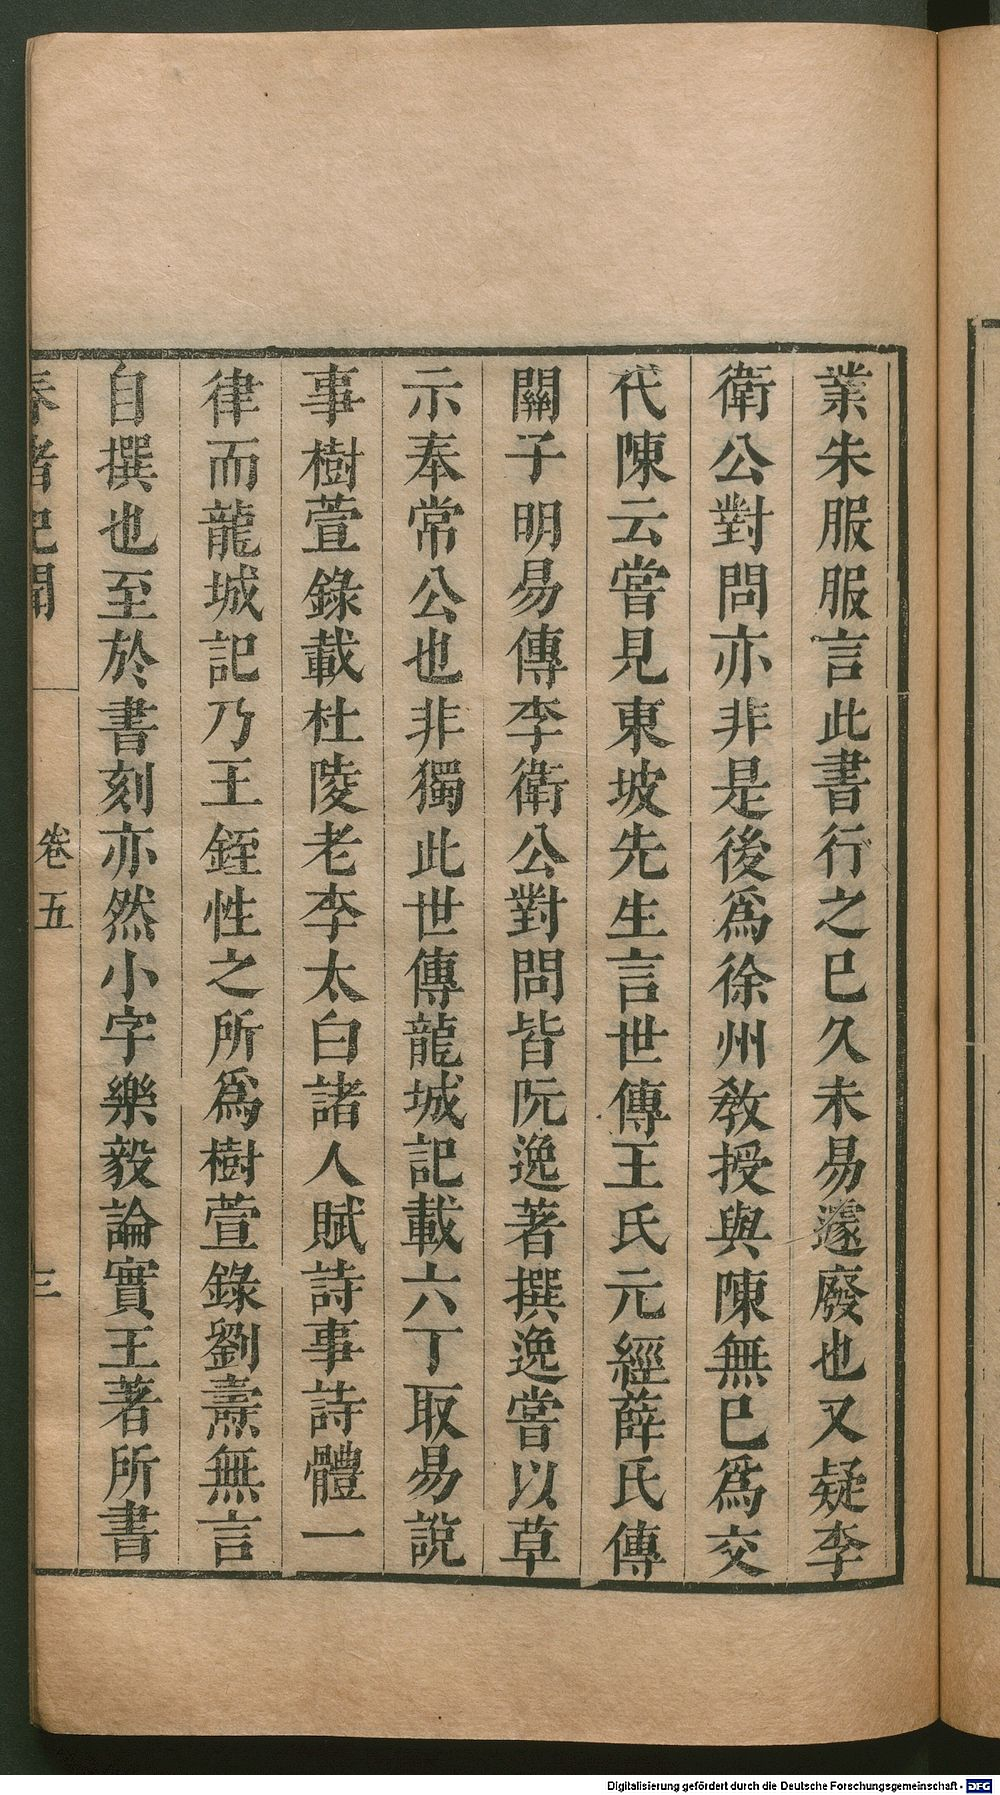 業朱服服言此書行之已久未易遽廢也又疑李
衛公對問亦非是後爲徐州敎授與陳無已爲交
代陳云嘗見東坡先生言世傳王氏元經薛氏傳
關子明易傳李衛公對問皆阮逸著撰逸嘗以草
示奉常公也非獨此世傳龍城記載六丁取易說
事樹萱錄載杜陵老李太白諸人賦詩事詩體一
律而龍城記乃王銍性之所爲樹萱錄劉燾無言
自撰也至於書刻亦然小字樂毅論實王著所書
春渚紀聞 卷五 三
Digitalisierung gefördert durch die Deutsche Forschungsgemeinschaft - DFG